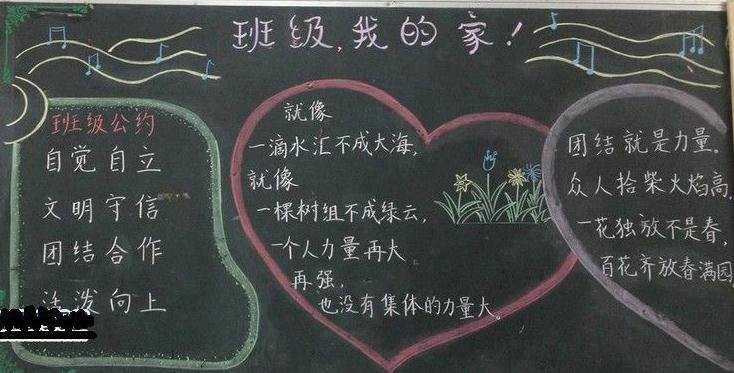 班级,我的家!
班级公约
自觉自立
文明守信
团结合作
活泼向上
就像
一滴水汇不成大海,
就像
一棵树组不成绿云,
一个人力量再大
再强,
也没有集体的力量大。
团结就是力量。
众人拾柴火焰高,
一花独放不是春,
百花齐放春满园